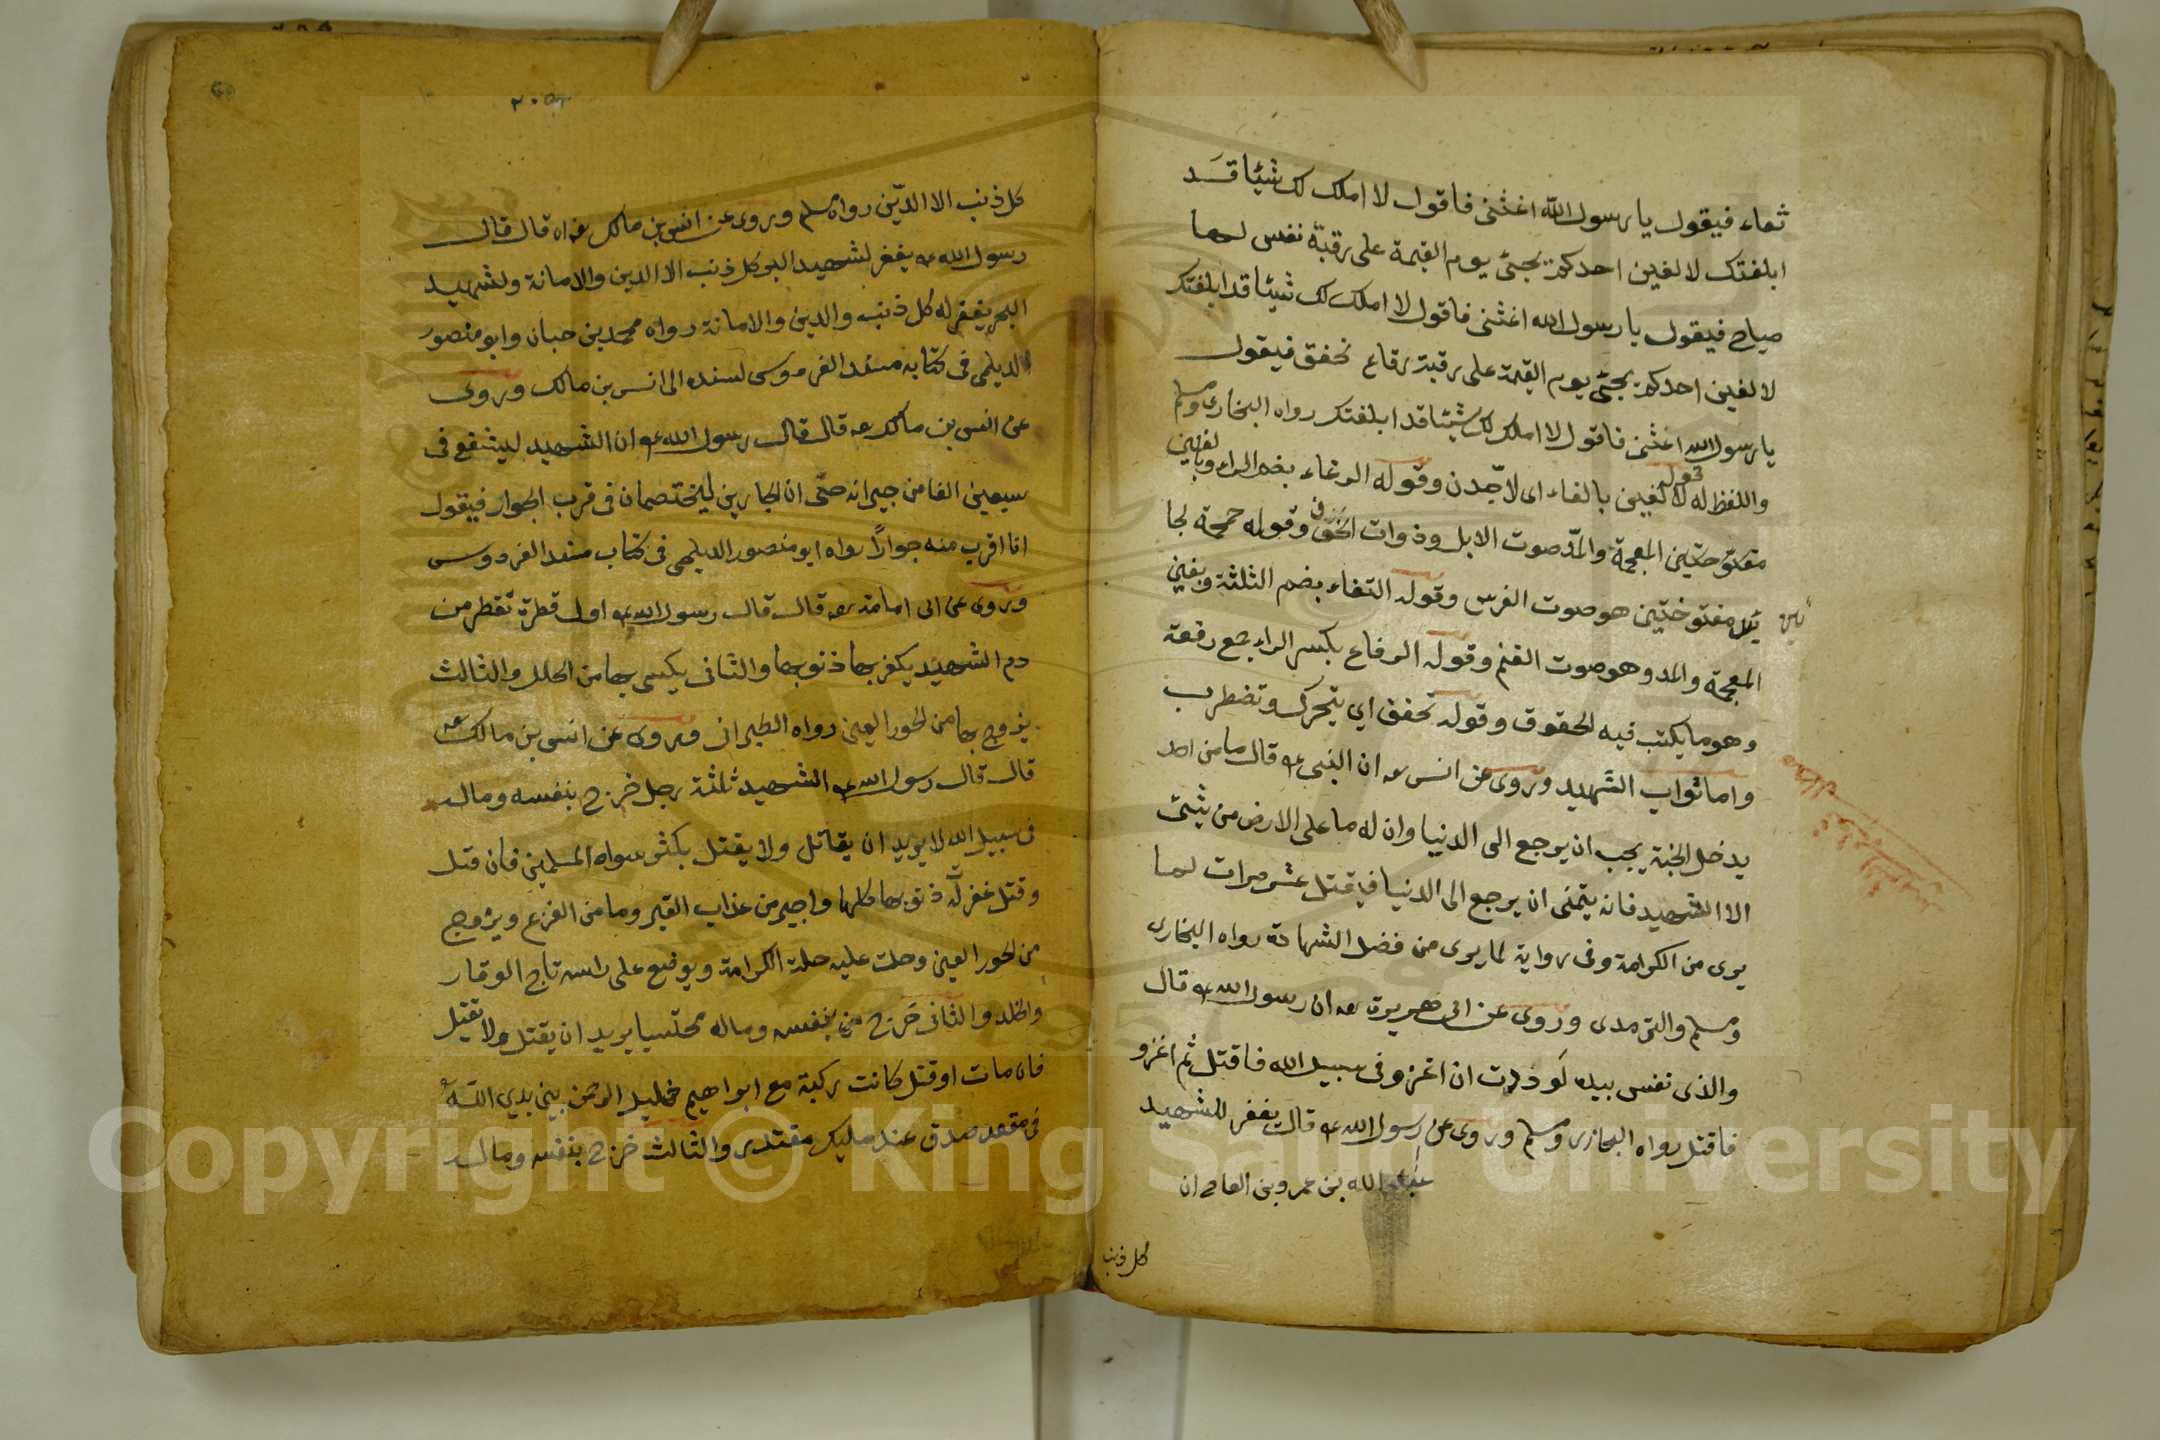 ثغاء فيقول يا رسول الله اغثنى فاقول لا املك لك شيئا قد
ابلغتك لا لفين احدكم يجئ يوم القيمة على رقبة نفس لها
صياح فيقول يا رسول الله اغثنى فاقول لا املك لك شيئا قد ابلغتك
لا لفين احدكم يجئ يوم القيمة على رقبة رقاع تخفق فيقول
يا رسول الله اغثنى فاقول لا املك لك شيئا قد ابلغتك رواه البخارى ومسلم
واللفظ له قوله لا لفين بالفاء اى لا جدن وقوله الرغاء بضم الراء وبالغين
المعجمة والمد صوت الابل وذوات الخف وقوله حمحمة بحا
ئين مفتوحتين هو صوت الفرس وقوله الثغاء بضم الثلثة وبغين
المعجمة والمد وهو صوت الغنم وقوله الرقاع بكسر الراء جمع رقعة
وهو ما يكتب فيه الحقوق وقوله تخفق اى يتحرك وتضطرب
واما ثواب الشهيد وروى عن انس عه ان النبى عم قال ما من احد
يدخل الجنة يحب ان يرجع الى الدنيا وان له ما على الارض من شئ
الا الشهيد فانه يتمنى ان يرجع الى الدنيا فيقتل عشر مرات لما
يرى من الكرامة وفى رواية لما يرى من فضل الشهادة رواه البخارى
ومسلم والترمدى وروى عن ابى هريرة عه ان رسول الله عم قال
والذى نفس بيده لو ددت ان اغزو فى سبيل الله فاقتل ثم اغزو
فاقتل رواه البخارى ومسلم وروى عن رسول الله عم قال يغفر للشهيد
عبد الله بن عمرو بن العاص ان
كل ذنب
كل ذنب الا الدين رواه مسلم وروى عن انس بن مالك عه انه قال قال
رسول الله عم يغفر لشهيد البر كل ذنب الا الدين والامانة ولشهيد
البحر يغفر له كل ذنب والدين والامانة رواه محمد بن حبان وابو منصور
الديلمى فى كتابه مسند الفردوسى لسنده الى انس بن مالك وروى
عن انس بن مالك عه قال قال رسول الله عم ان الشهيد ليشفع فى
سبعين الفا من جيرانه حتى ان الجارين ليختصمان فى قرب الجوار فيقول
انا اقرب منه جوارا رواه ابو منصور الديلمى فى كتاب مسند الفردوس
وروى عن ابى امامة عه قال قال رسول الله عم اول قطرة تقطر من
دم الشهيد يكفر بها ذنوبها والثانى يكسى بها من الحلل والثالث
يزوج بها من الحور العين رواه الطبرانى وروى عن انس بن مالك عه
قال قال رسول الله عم الشهيد ثلثة رجل خرج بنفسه وماله
فى سبيل الله لا يريد ان يقاتل ولا يقتل بكثر سواد المسلمين فان قتل
وقتل غفر له ذنوبها كلها واجير من عذاب القبر وما من الفزع ويزوج
من الحور العين وحلت عليه حلة الكرامة ويوضع على راسه تاج الوقار
والخلد والثانى خرج بنفسه وماله محتسبا يريد ان يقتل ولا يقتل
فان مات او قتل كانت ركبة مع ابراهيم خليل الرحمن بين يدي الله
فى مقعد صدق عند مليك مقتدر والثالث خرج بنفسه وماله
Copyright © King Saud University